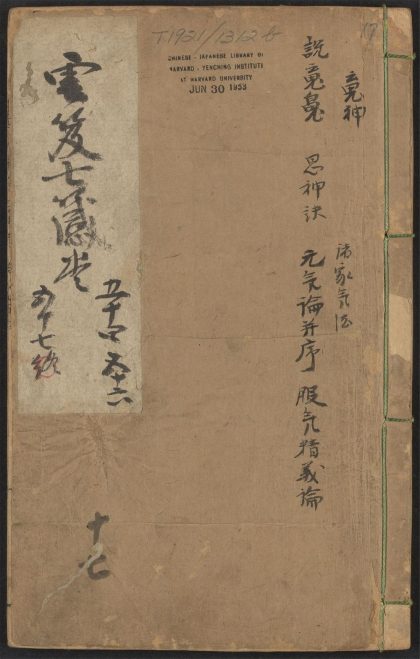 17
T1921/1312b
CHINESE - JAPANESE LIBRARY OF
HARVARD - YENCHING INSTITUTE
AT HARVARD UNIVERSITY
JUN 30 1933
䰟神
諸家気法
說䰟魄 思神訣 元気論并序 服気精義論
雲笈七籤卷
五十四 五十六
五十七終
十七